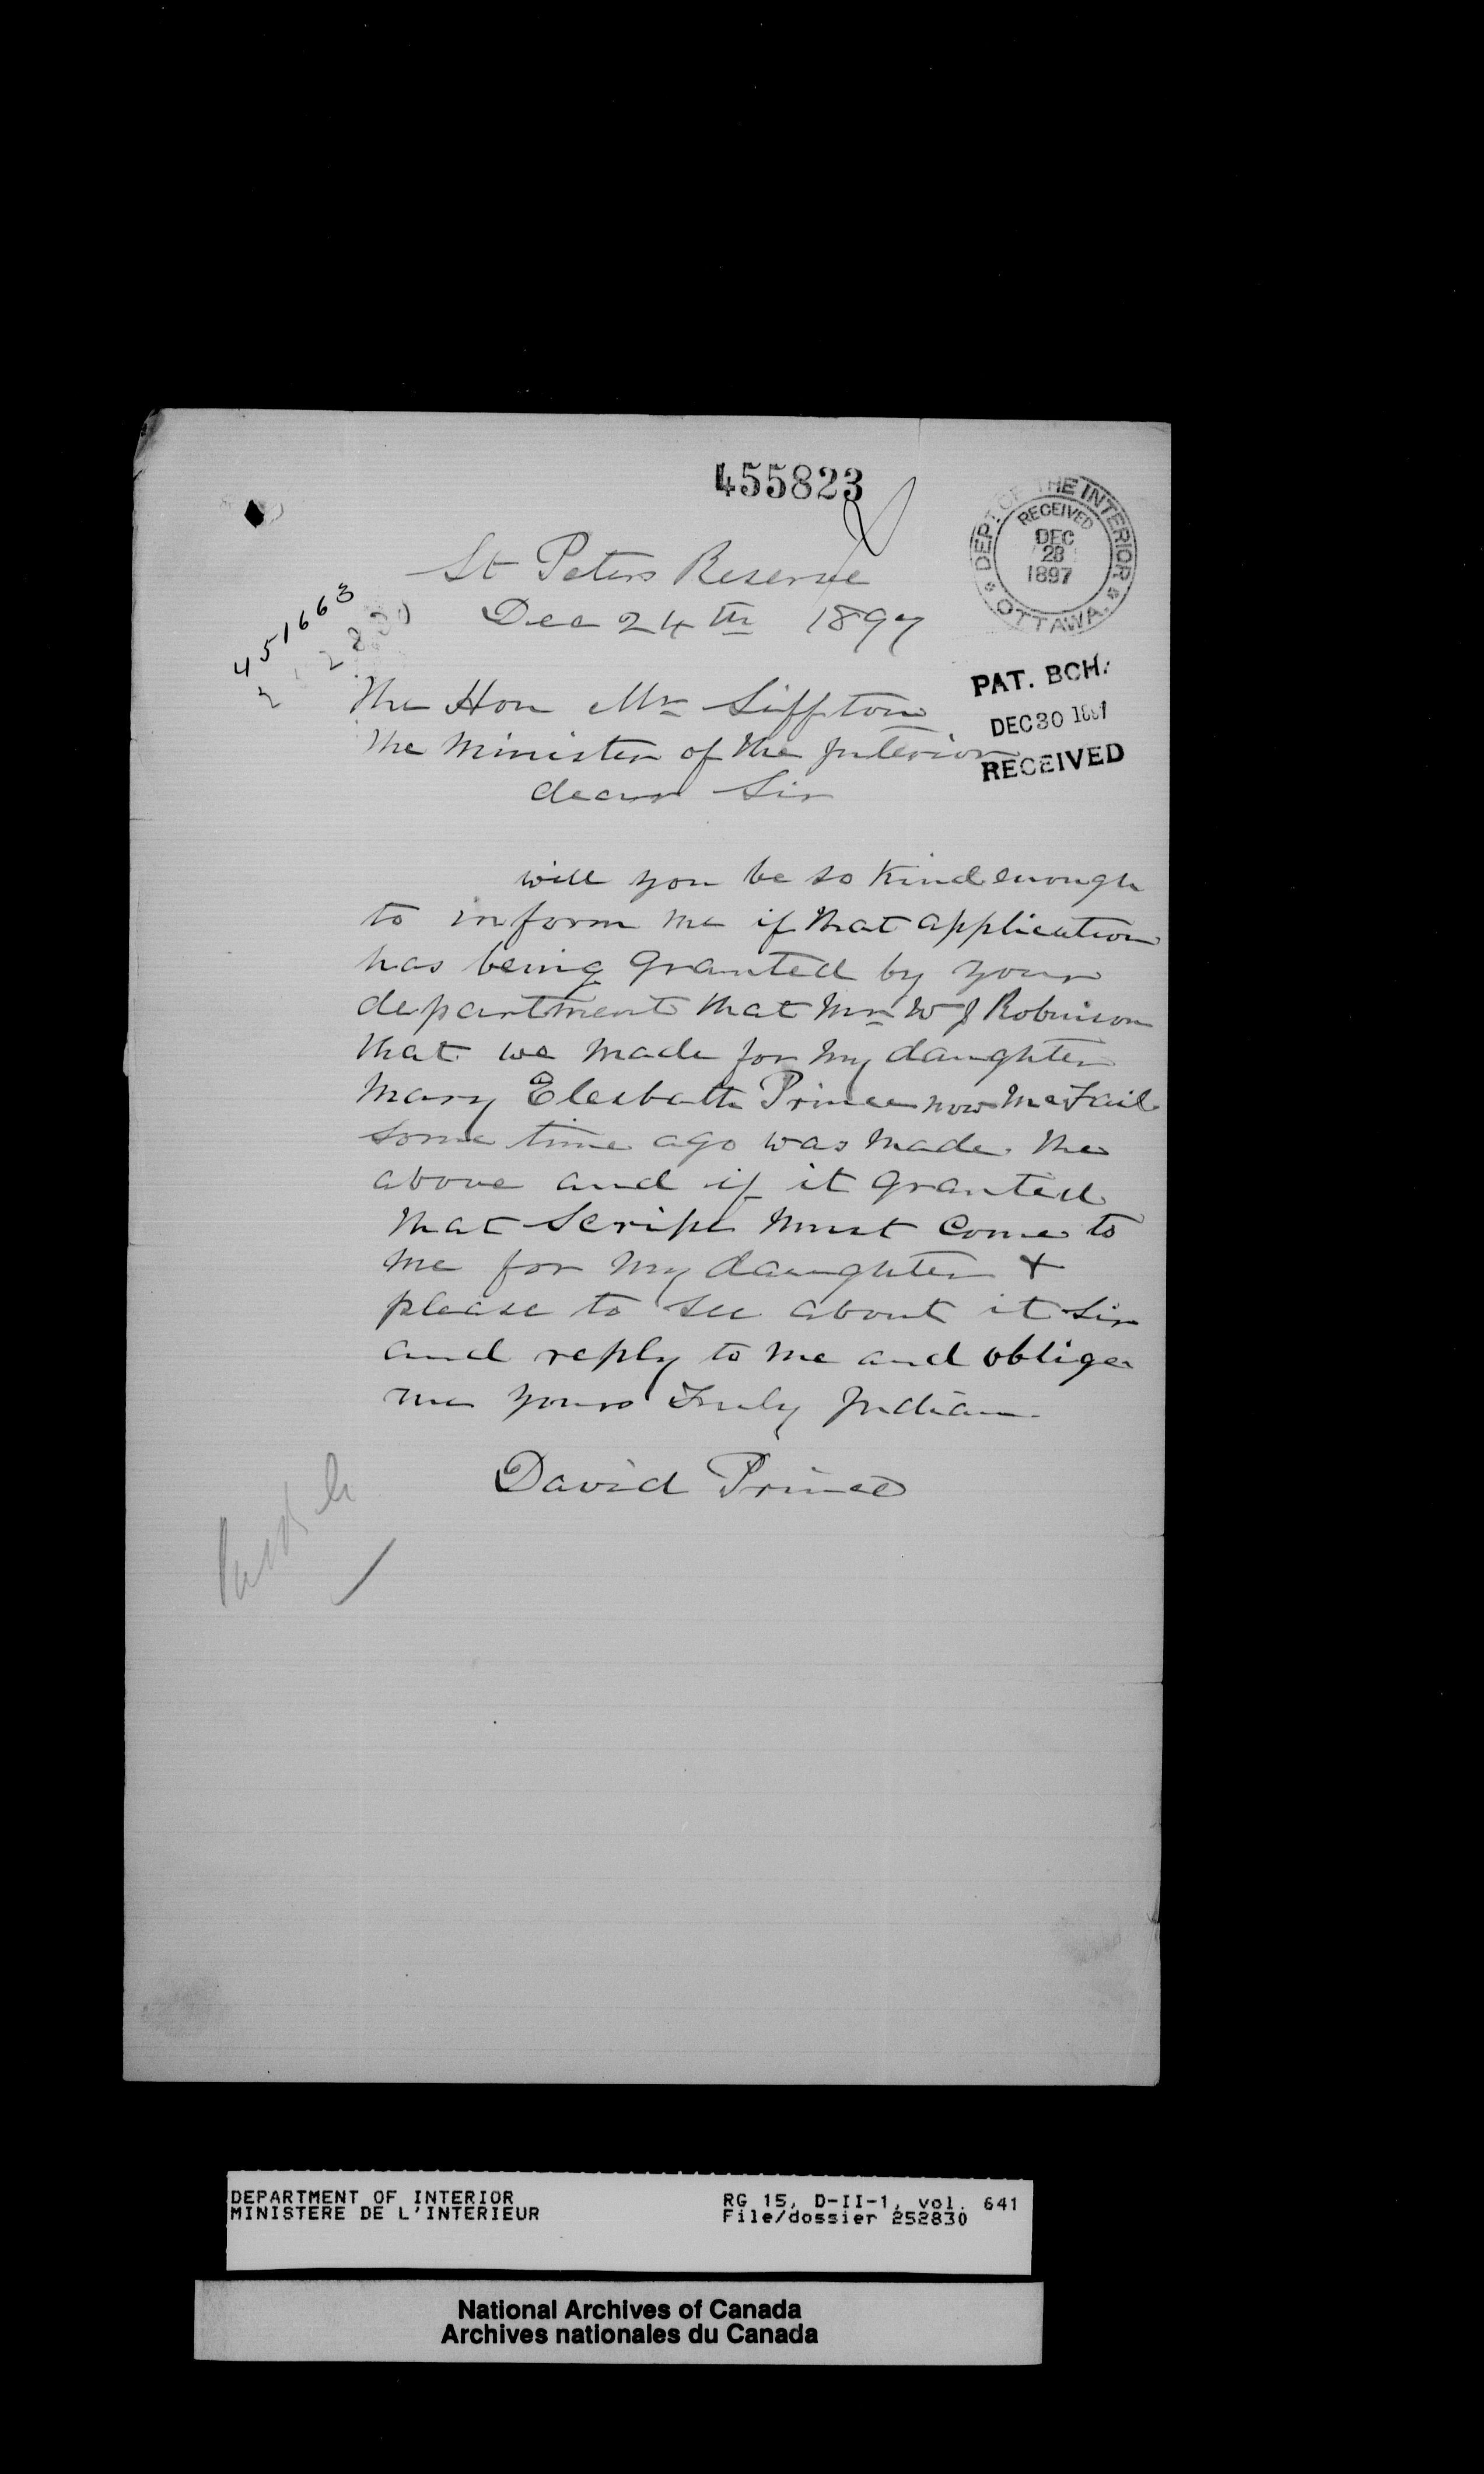 455823
DEPT OF THE INTERIOR
RECEIVED
DEC
28
1897
OTTAWA
St Peters Reserve
Dec 24th 1897
451663
PAT. BCH.
DEC 30 1897
RECEIVED
The Hon Mr Siffton
the Minister of the Interior
dear Sir
will you be so Kind enough
to inform me if that application
has being granted by your
department that Mr W J Robinson
that we made for my daughter
Mary Elesbath Prince now McFail
some time ago was made the
above and if it granted
that Scripe must Come to
me for my daughter +
please to see about it Sir
and reply to me and oblige
me yours Truly Indian
David Prince
DEPARTMENT OF INTERIOR
MINISTERE DE L'INTERIEUR
RG 15, D-II-1, vol. 641
File/dossier 252830
National Archives of Canada
Archives nationales du Canada